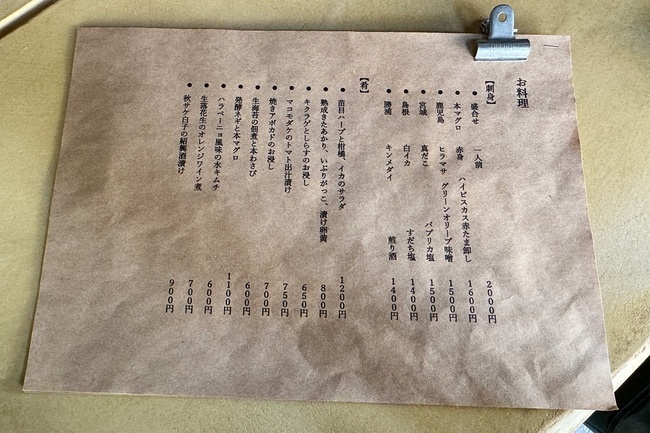 お料理
【刺身】
● 盛合せ 一人前 2000円
● 本マグロ 赤身 ハイビスカス赤たま卸し 1600円
● 鹿児島 ヒラマサ グリーンオリーブ味噌 1500円
● 宮城 真だこ パプリカ塩 1500円
● 島根 白イカ すだち塩 1400円
● 勝浦 キンメダイ 煎り酒 1400円
【肴】
● 苗目ハーブと柑橘、イカのサラダ 1200円
● 熟成きたあかり、いぶりがっこ、漬け卵黄 800円
● キクラゲとしらすのお浸し 650円
● マコモダケのトマト出汁漬け 750円
● 焼きアボカドのお浸し 700円
● 生海苔の佃煮と本わさび 600円
● 発酵ネギと本マグロ 1100円
● ハラペーニョ風味の水キムチ 600円
● 生落花生のオレンジワイン煮 700円
● 秋サケ白子の紹興酒漬け 900円